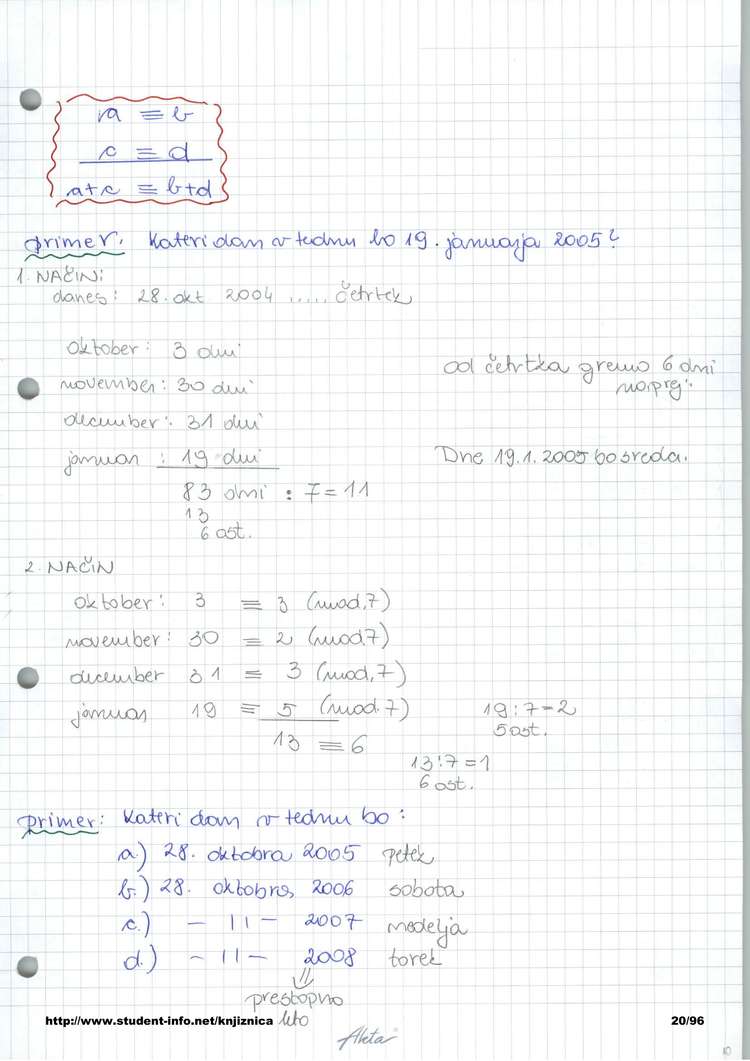 a ≡ b
c ≡ d
a+c ≡ b+d
primer. Kateri dan v tednu bo 19. januarja 2005?
1. NAČIN:
danes: 28. okt 2004 ..... četrtek
oktober: 3 dni
november: 30 dni
december: 31 dni
januar: 19 dni
83 dni : 7 = 11
13
6 ost.
od četrtka gremo 6 dni
naprej:
Dne 19.1.2005 bo sreda.
2. NAČIN
oktober: 3 ≡ 3 (mod.7)
november: 30 ≡ 2 (mod7)
december 31 ≡ 3 (mod.7)
januar 19 ≡ 5 (mod.7)
19:7=2
5 ost.
13 ≡ 6
13:7=1
6 ost.
primer: Kateri dan v tednu bo:
a.) 28. oktobra 2005 petek
b.) 28. oktobra, 2006 sobota
c.) – 11 – 2007 nedelja
d.) – 11 – 2008 torek
⇓
prestopno
leto
http://www.student-info.net/knjiznica
20/96
10